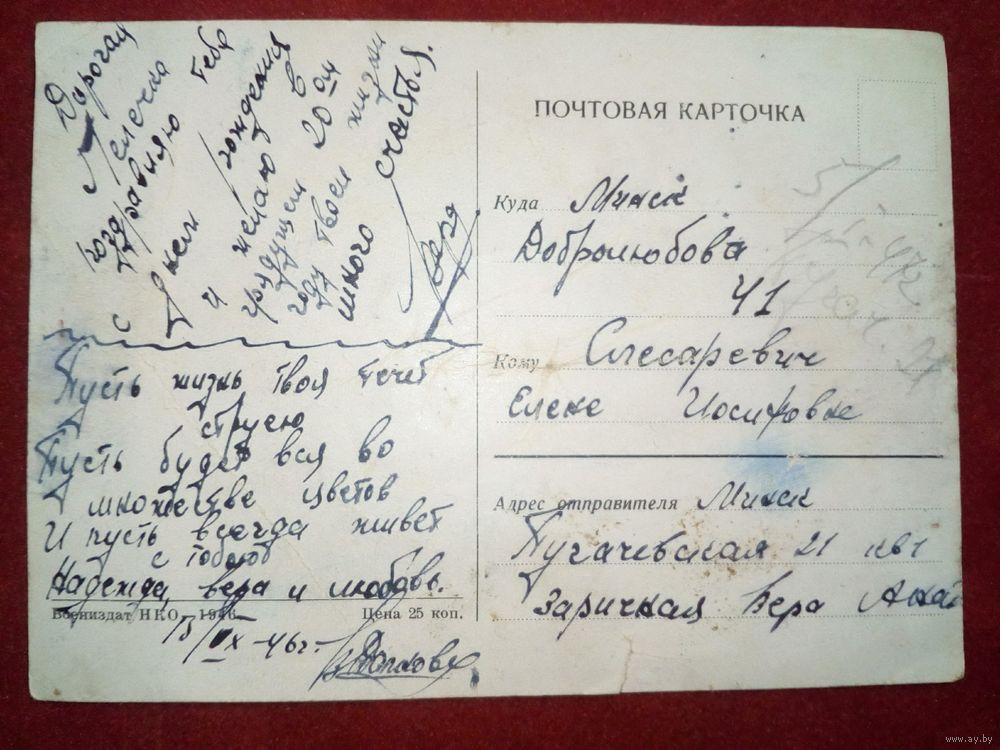 Дорогая
Леночка
поздравляю тебя
с Днем рождения
и желаю в
грядущем 20ом
году твоей жизни
много счастья.
Вера
Пусть жизнь твоя течет
струею
Пусть будет вся во
множестве цветов
И пусть всегда живет
с тобою
Надежда, вера и любовь.
Воениздат НКО 1946 Цена 25 коп.
5/IX-46г.
ПОЧТОВАЯ КАРТОЧКА
Куда Минск
Добролюбова
41
Кому Слесаревич
Елене Иосифовне
Адрес отправителя Минск
Пугачевская 21 кв 1
Заричная Вера
www.ay.by